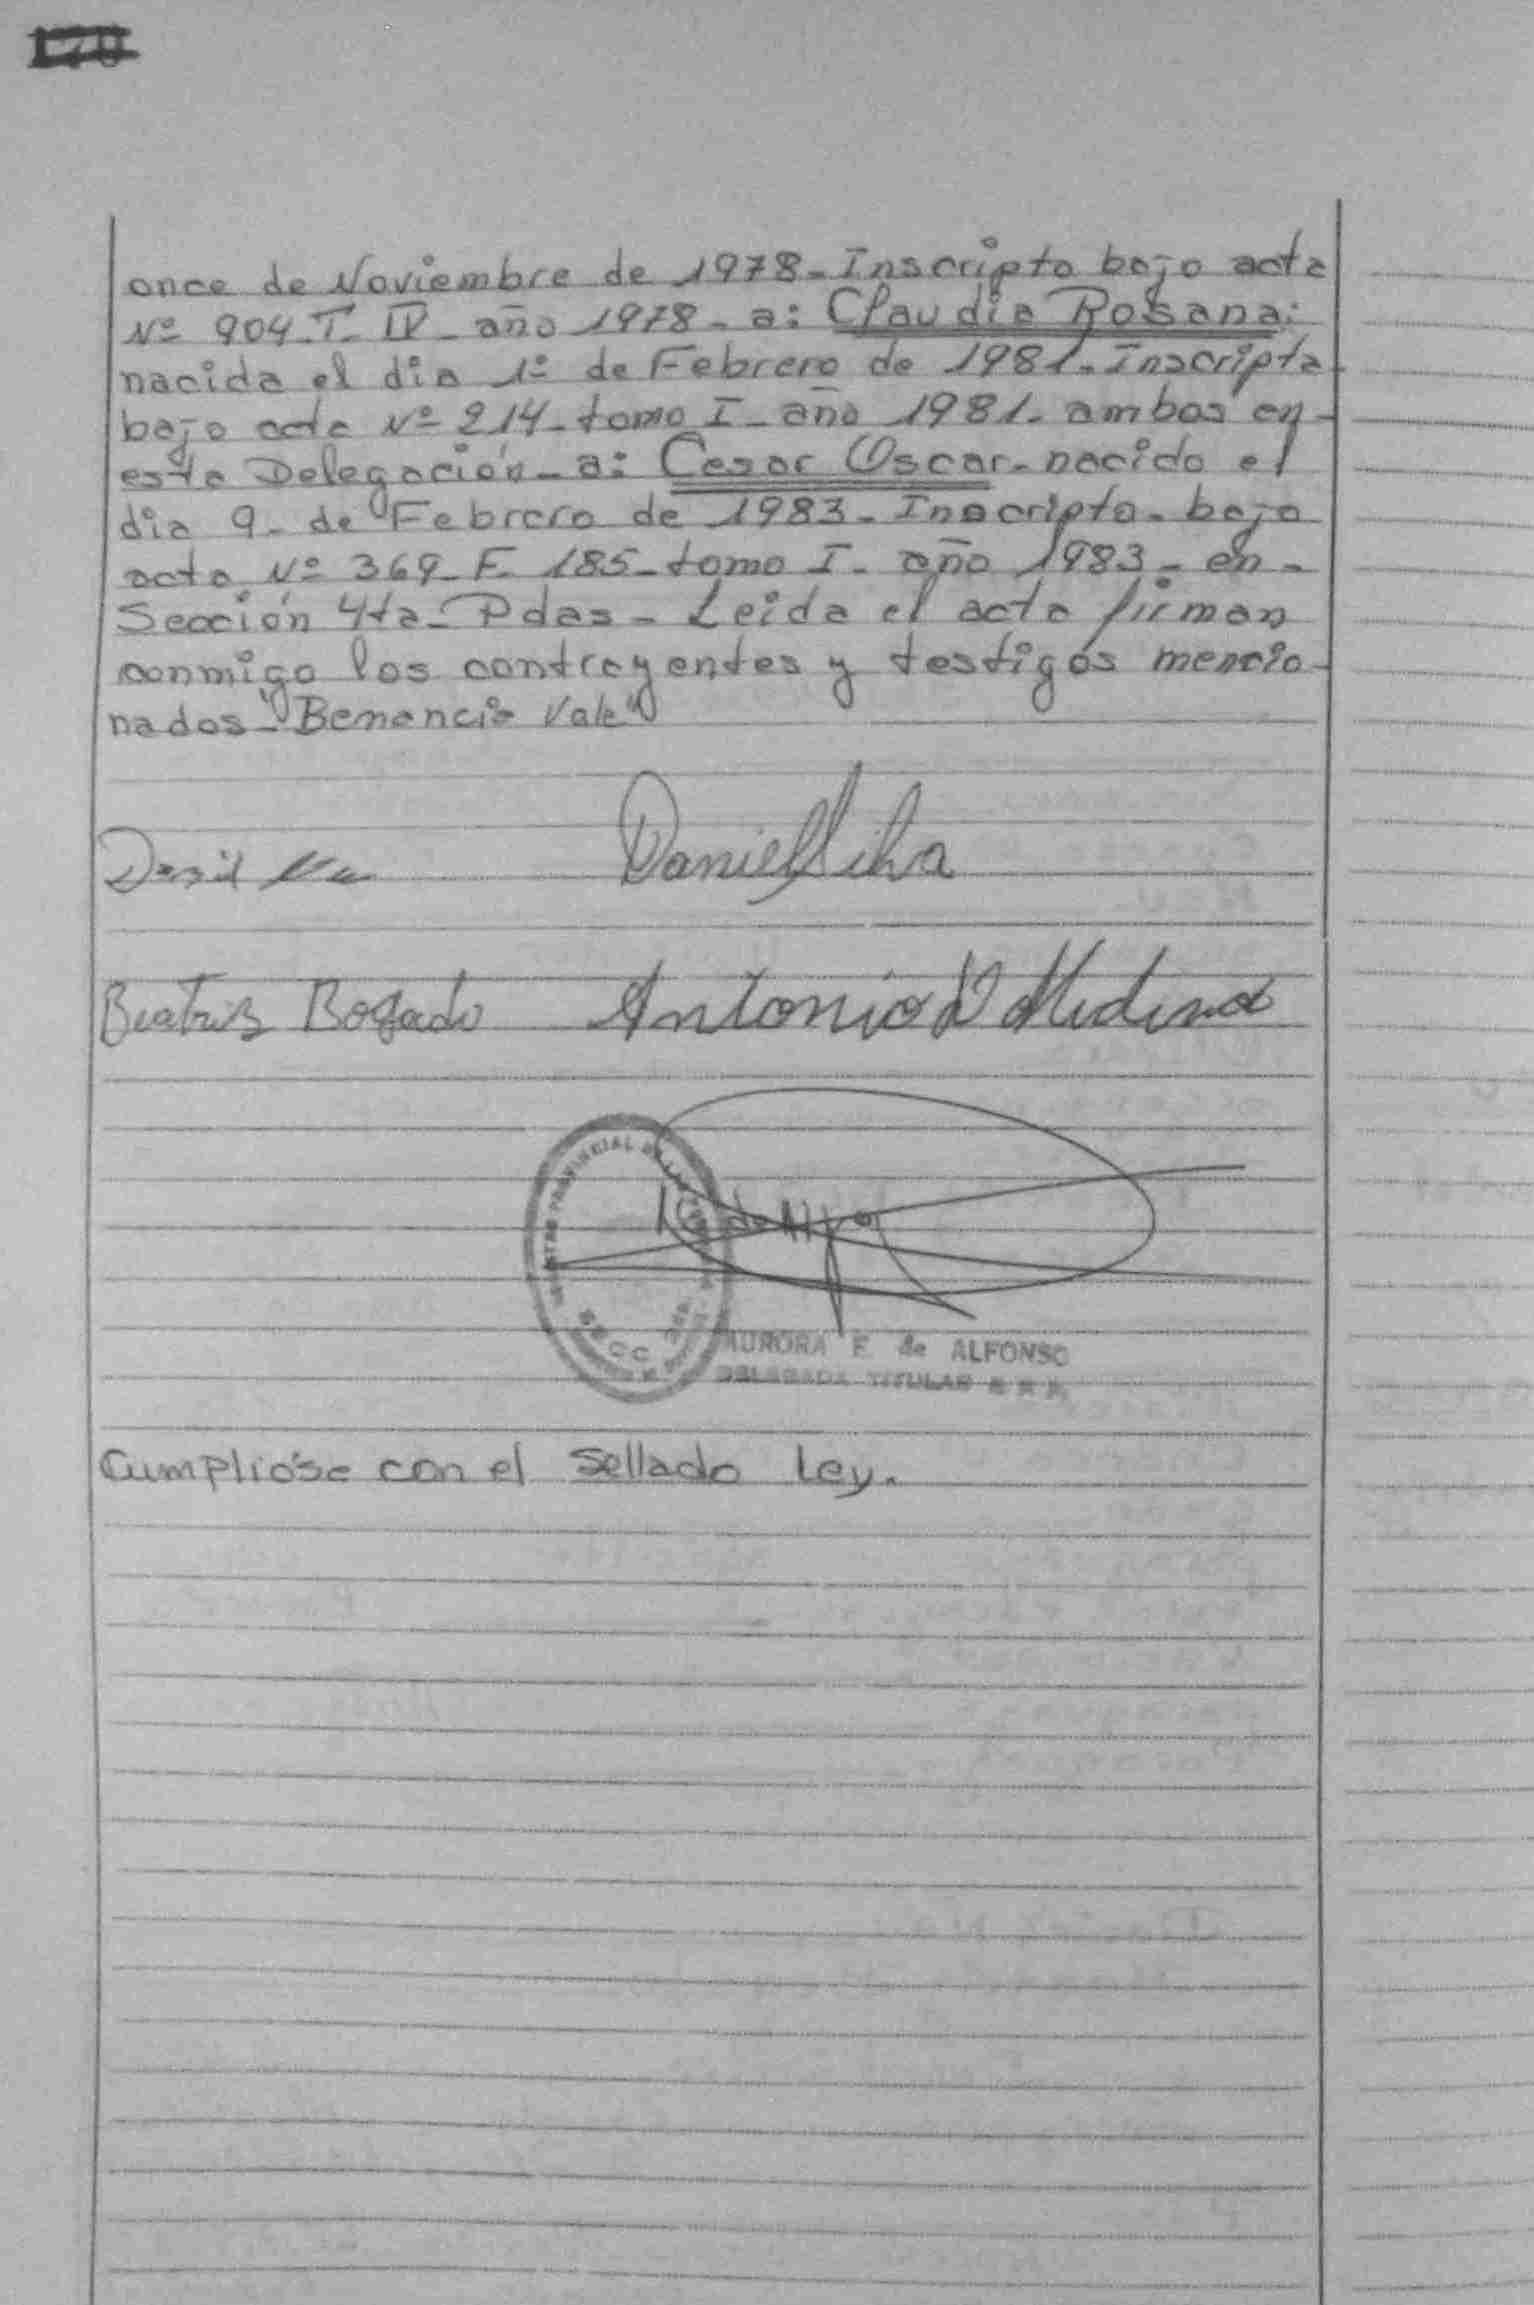 170
once de Noviembre de 1978_ Inscripto bajo acta
Nº 904_T_ IV_ año 1978_ a: Claudia Rosana:
nacida el dia 1º de Febrero de 1981. Inscripta
bajo acta Nº 214_ tomo I_ año 1981_ ambos en_
esta Delegación_ a: Cesar Oscar_ nacido el
dia 9_ de Febrero de 1983_ Inscripto_ bajo
acta Nº 369_F_ 185_ tomo I_ año 1983_ en_
Sección 4ta_ Pdas_ Leida el acta firman
conmigo los contrayentes y testigos mencio_
nados_ "Benancia Vale"
Daniel Silva
Beatriz Bogado Antonio Medina
PROVINCIAL DE LAS
de
SECC
AURORA F. de ALFONSO
DELEGADA TITULAR
Cumplióse con el sellado Ley.